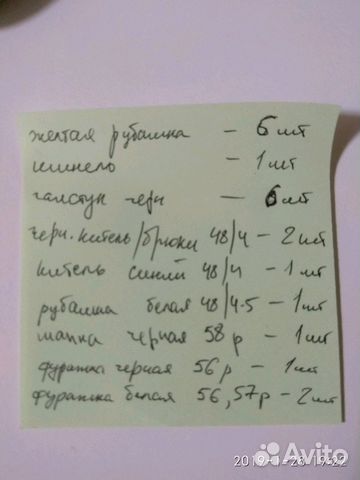 желтая рубашка – 6 шт
шинель – 1 шт
галстук черн – 6 шт
черн. китель/брюки 48/4 – 2 шт
китель синий 48/4 – 1 шт
рубашка белая 48/4-5 – 1 шт
шапка черная 58 р – 1 шт
фуражка черная 56 р – 1 шт
фуражка белая 56,57р – 2 шт
2019-1-28 19:22
Avito